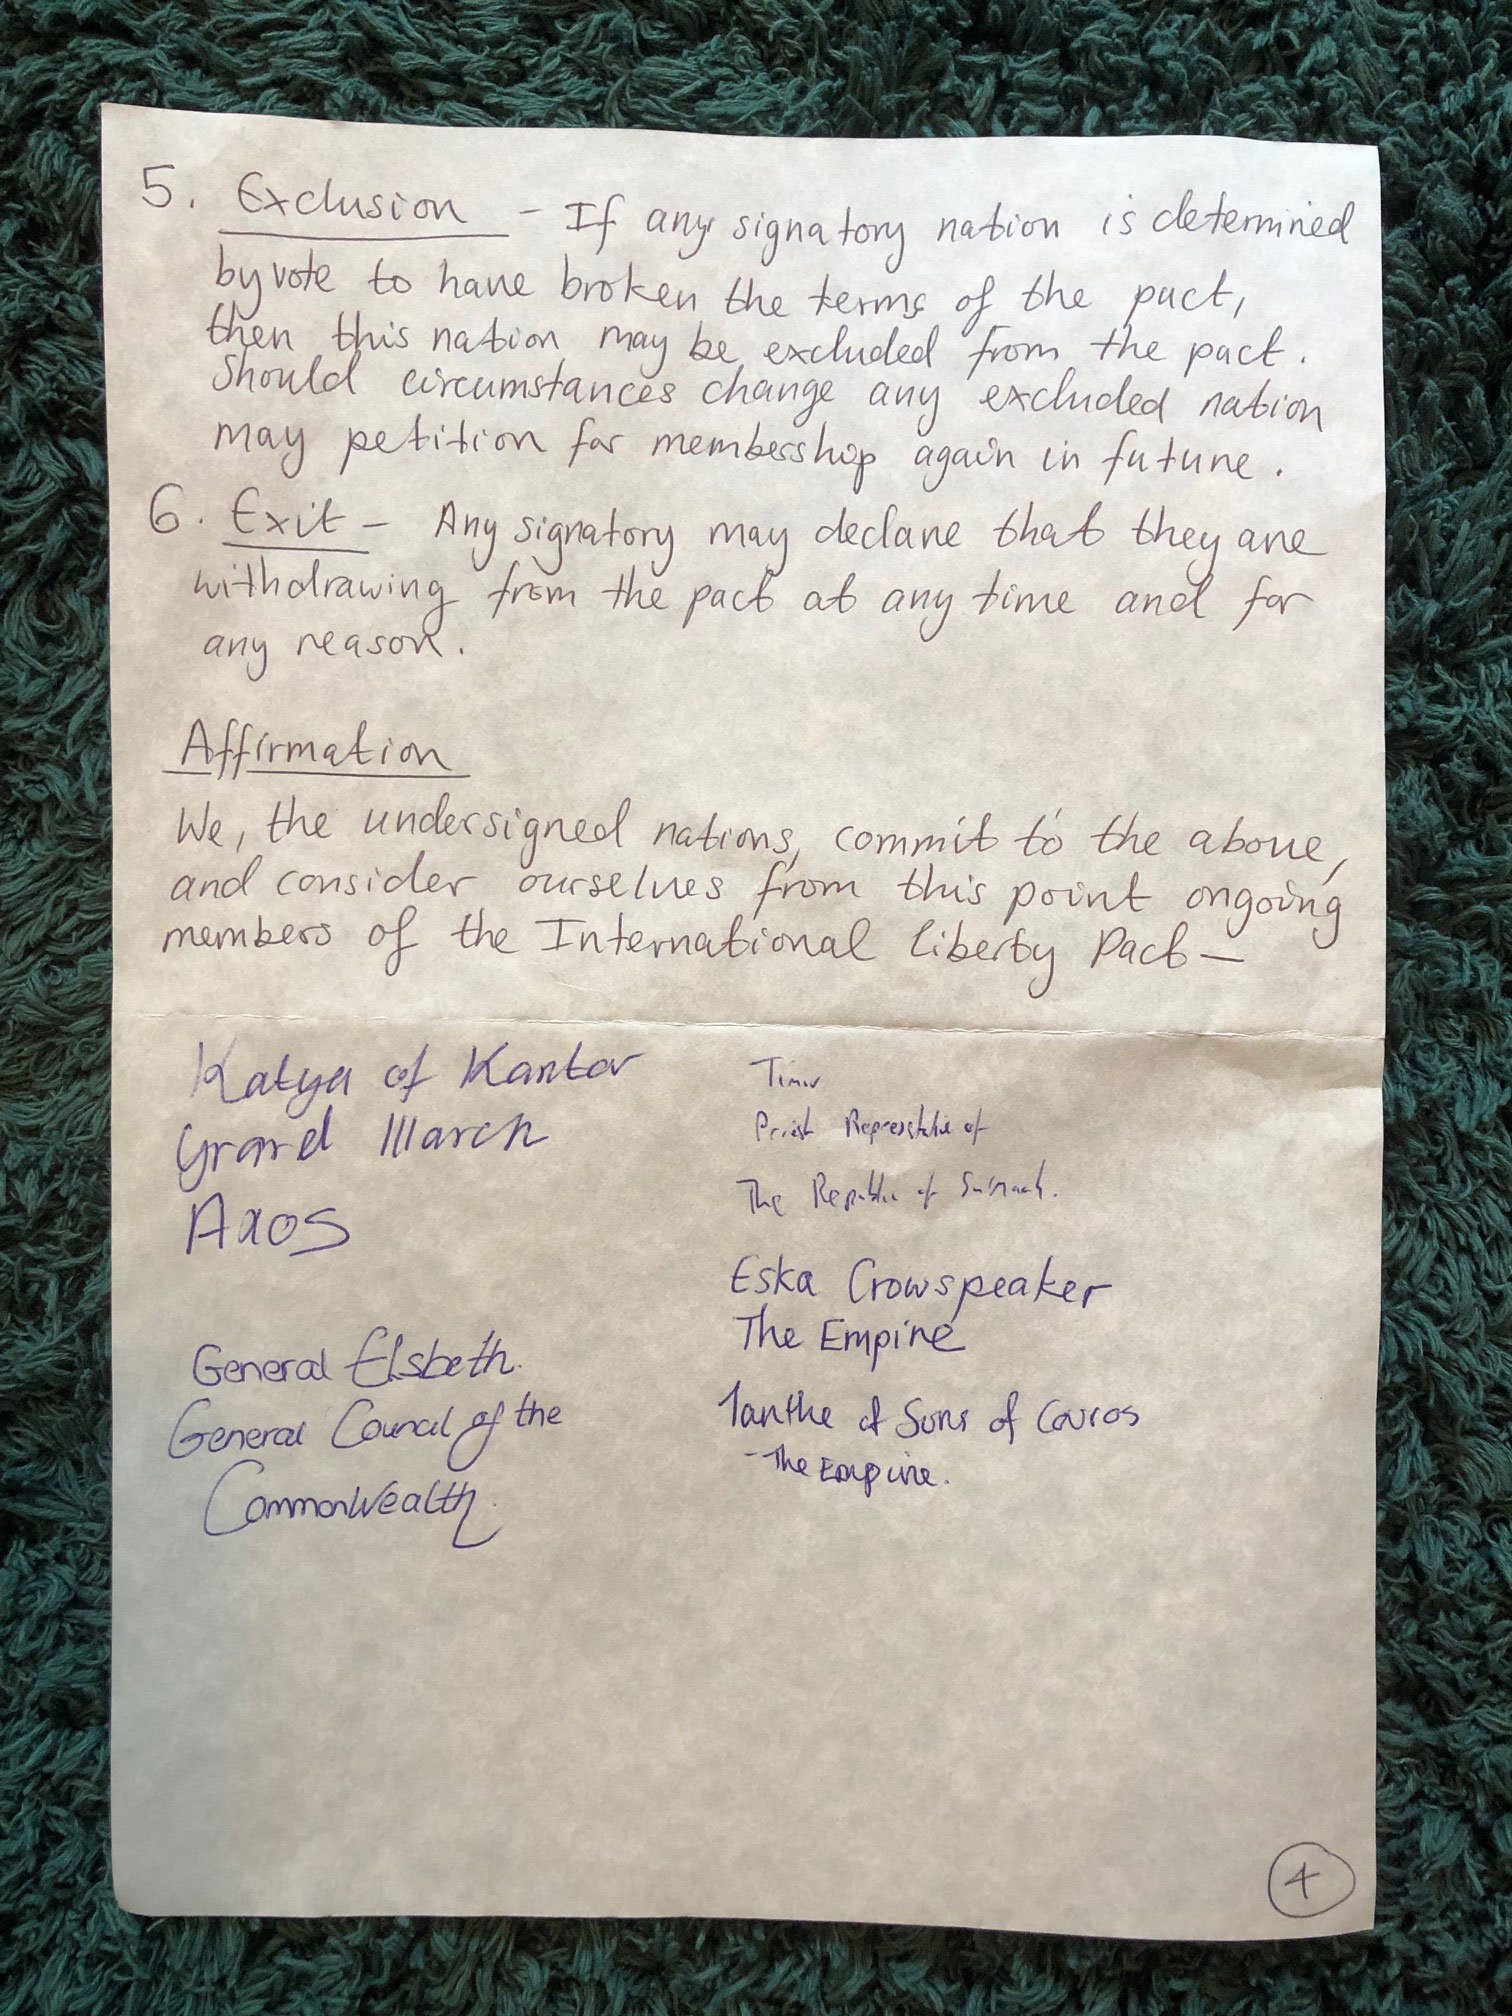 5. Exclusion - If any signatory nation is determined
by vote to have broken the terms of the pact,
then this nation may be excluded from the pact.
Should circumstances change any excluded nation
may petition for membership again in future.
6. Exit - Any signatory may declare that they are
withdrawing from the pact at any time and for
any reason.
Affirmation
We, the undersigned nations, commit to the above,
and consider ourselves from this point ongoing
members of the International Liberty Pact -
Katya of Kantor
Grard March
Axos
General Elsbeth.
General Council of the
Commonwealth.
Timur
Representative of
The Republic of
Eska Crowspeaker
The Empire
Ianthe of Sons of Couros
- The Empire.
4